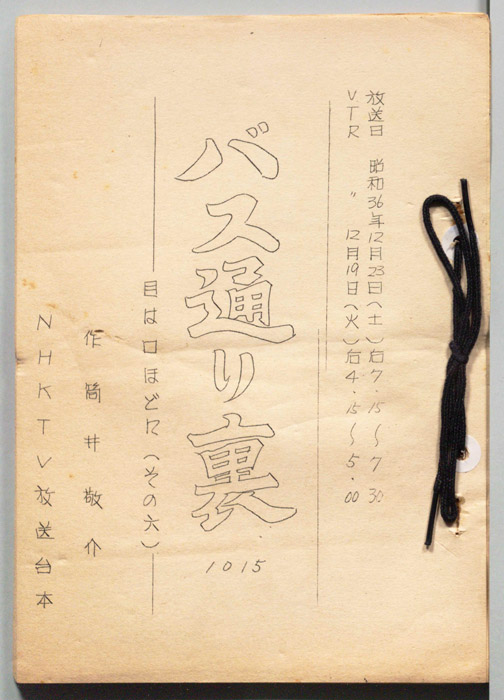 放送日 昭和36年12月23日(土)后7.15~7.30
VTR 〃 12月19日(火)后4.15~5.00
バス通り裏
1015
目は口ほどに(その六)
作 筒井敬介
NHKTV放送台本